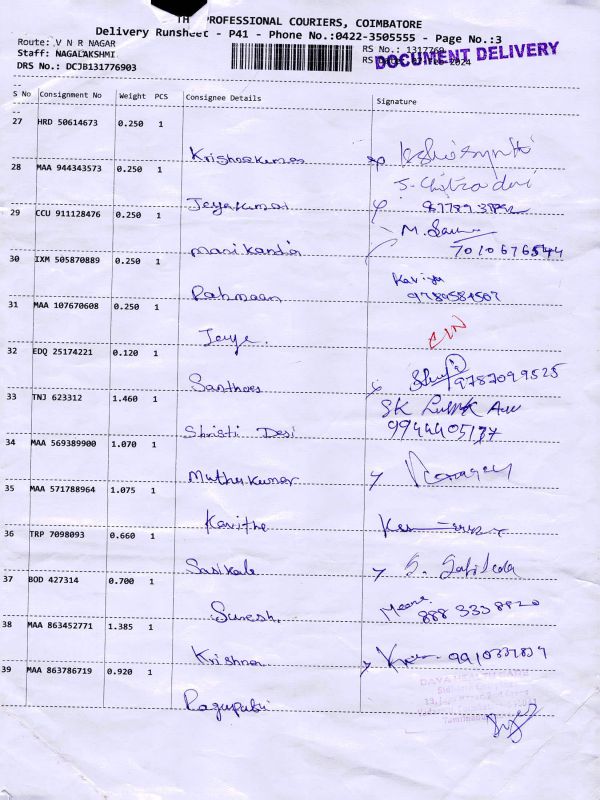 TH PROFESSIONAL COURIERS, COIMBATORE
Delivery Runsheet - P41 - Phone No.:0422-3505555 - Page No.:3
Route: V N R NAGAR
Staff: NAGALAKSHMI
DRS No.: DCJB131776903
RS No.: 1317769
DOCUMENT DELIVERY
S No Consignment No Weight PCS Consignee Details Signature
27 HRD 50614673 0.250 1
Krishnakumar
28 MAA 944343573 0.250 1
J. Chitra devi
Jeyakumar
29 CCU 911128476 0.250 1
M.
Manikandan 7010676544
30 IXM 505870889 0.250 1
Kaviya
Rahmaan 9789584507
31 MAA 107670608 0.250 1
Jeye.
32 EDQ 25174221 0.120 1
Santhoes 9787099525
33 TNJ 623312 1.460 1
SK
Shristi Desi 9944405137
34 MAA 569389900 1.070 1
Muthukumar
35 MAA 571788964 1.075 1
Kavithe
36 TRP 7098093 0.660 1
Sasikale S.
37 BOD 427314 0.700 1
Meena
Suresh. 888 333 8820
38 MAA 863452771 1.385 1
Krishnan
39 MAA 863786719 0.920 1
Ragupathi